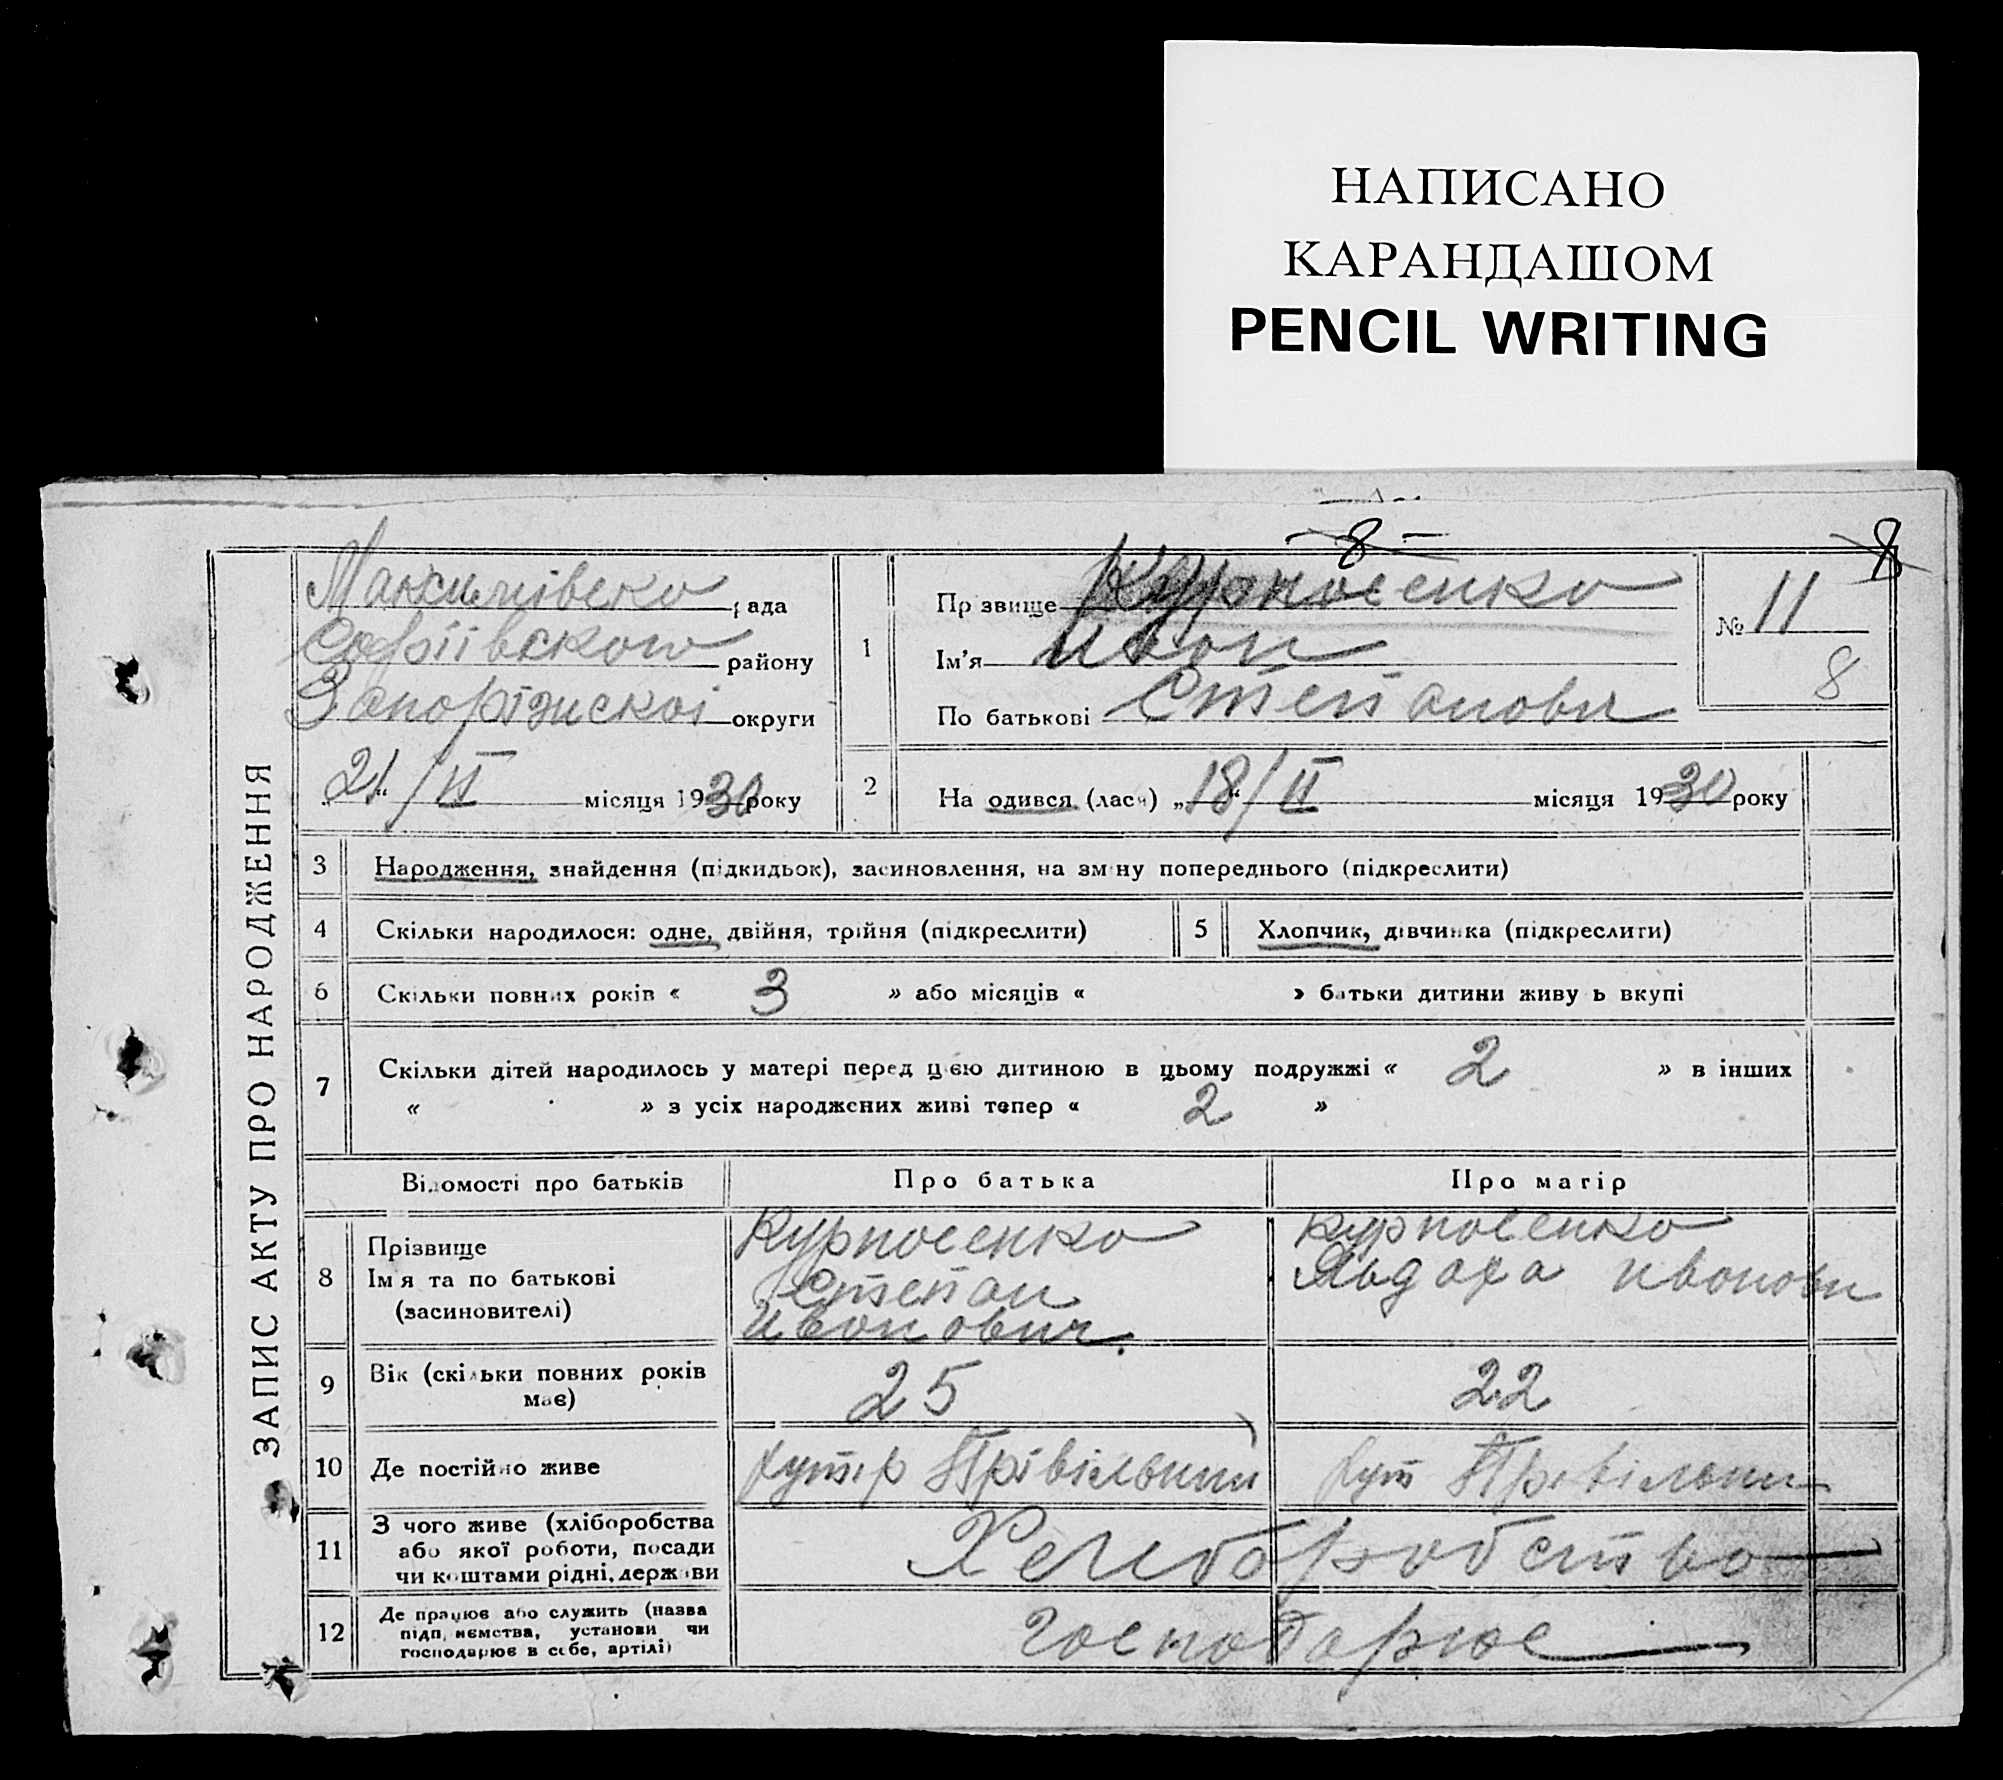 НАПИСАНО
КАРАНДАШОМ
PENCIL WRITING
8
8
ЗАПИС АКТУ ПРО НАРОДЖЕННЯ
Максимівско рада
Софіівского району
Запоріжскоі округи
„21“/II місяця 1930 року
1
Прізвище Курносенко
Ім'я Иван
По батькові Степанович
№ 11
8
2 Народився (лася) „18“/II місяця 1930 року
3 Народження, знайдення (підкидьок), засиновлення, на зміну попереднього (підкреслити)
4 Скільки народилося: одне, двійня, трійня (підкреслити) 5 Хлопчик, дівчинка (підкреслити)
6 Скільки повних років « 3 » або місяців « » батьки дитини живуть вкупі
7 Скільки дітей народилось у матері перед цією дитиною в цьому подружжі « 2 » в інших
« » з усіх народжених живі тепер « 2 »
Відомості про батьків Про батька Про матір
8
Прізвище Курносенко Курносенко
Ім'я та по батькові Степан
(засиновителі) Иванович
9 Вік (скільки повних років 25 22
має)
10 Де постійно живе хутір Прівільний хут Прівільни
11 З чого живе (хліборобства
або якої роботи, посади Хлиборобство
чи коштами рідні, держави
12 Де працює або служить (назва
підприємства, установи чи господарює
господарює в себе, артілі)